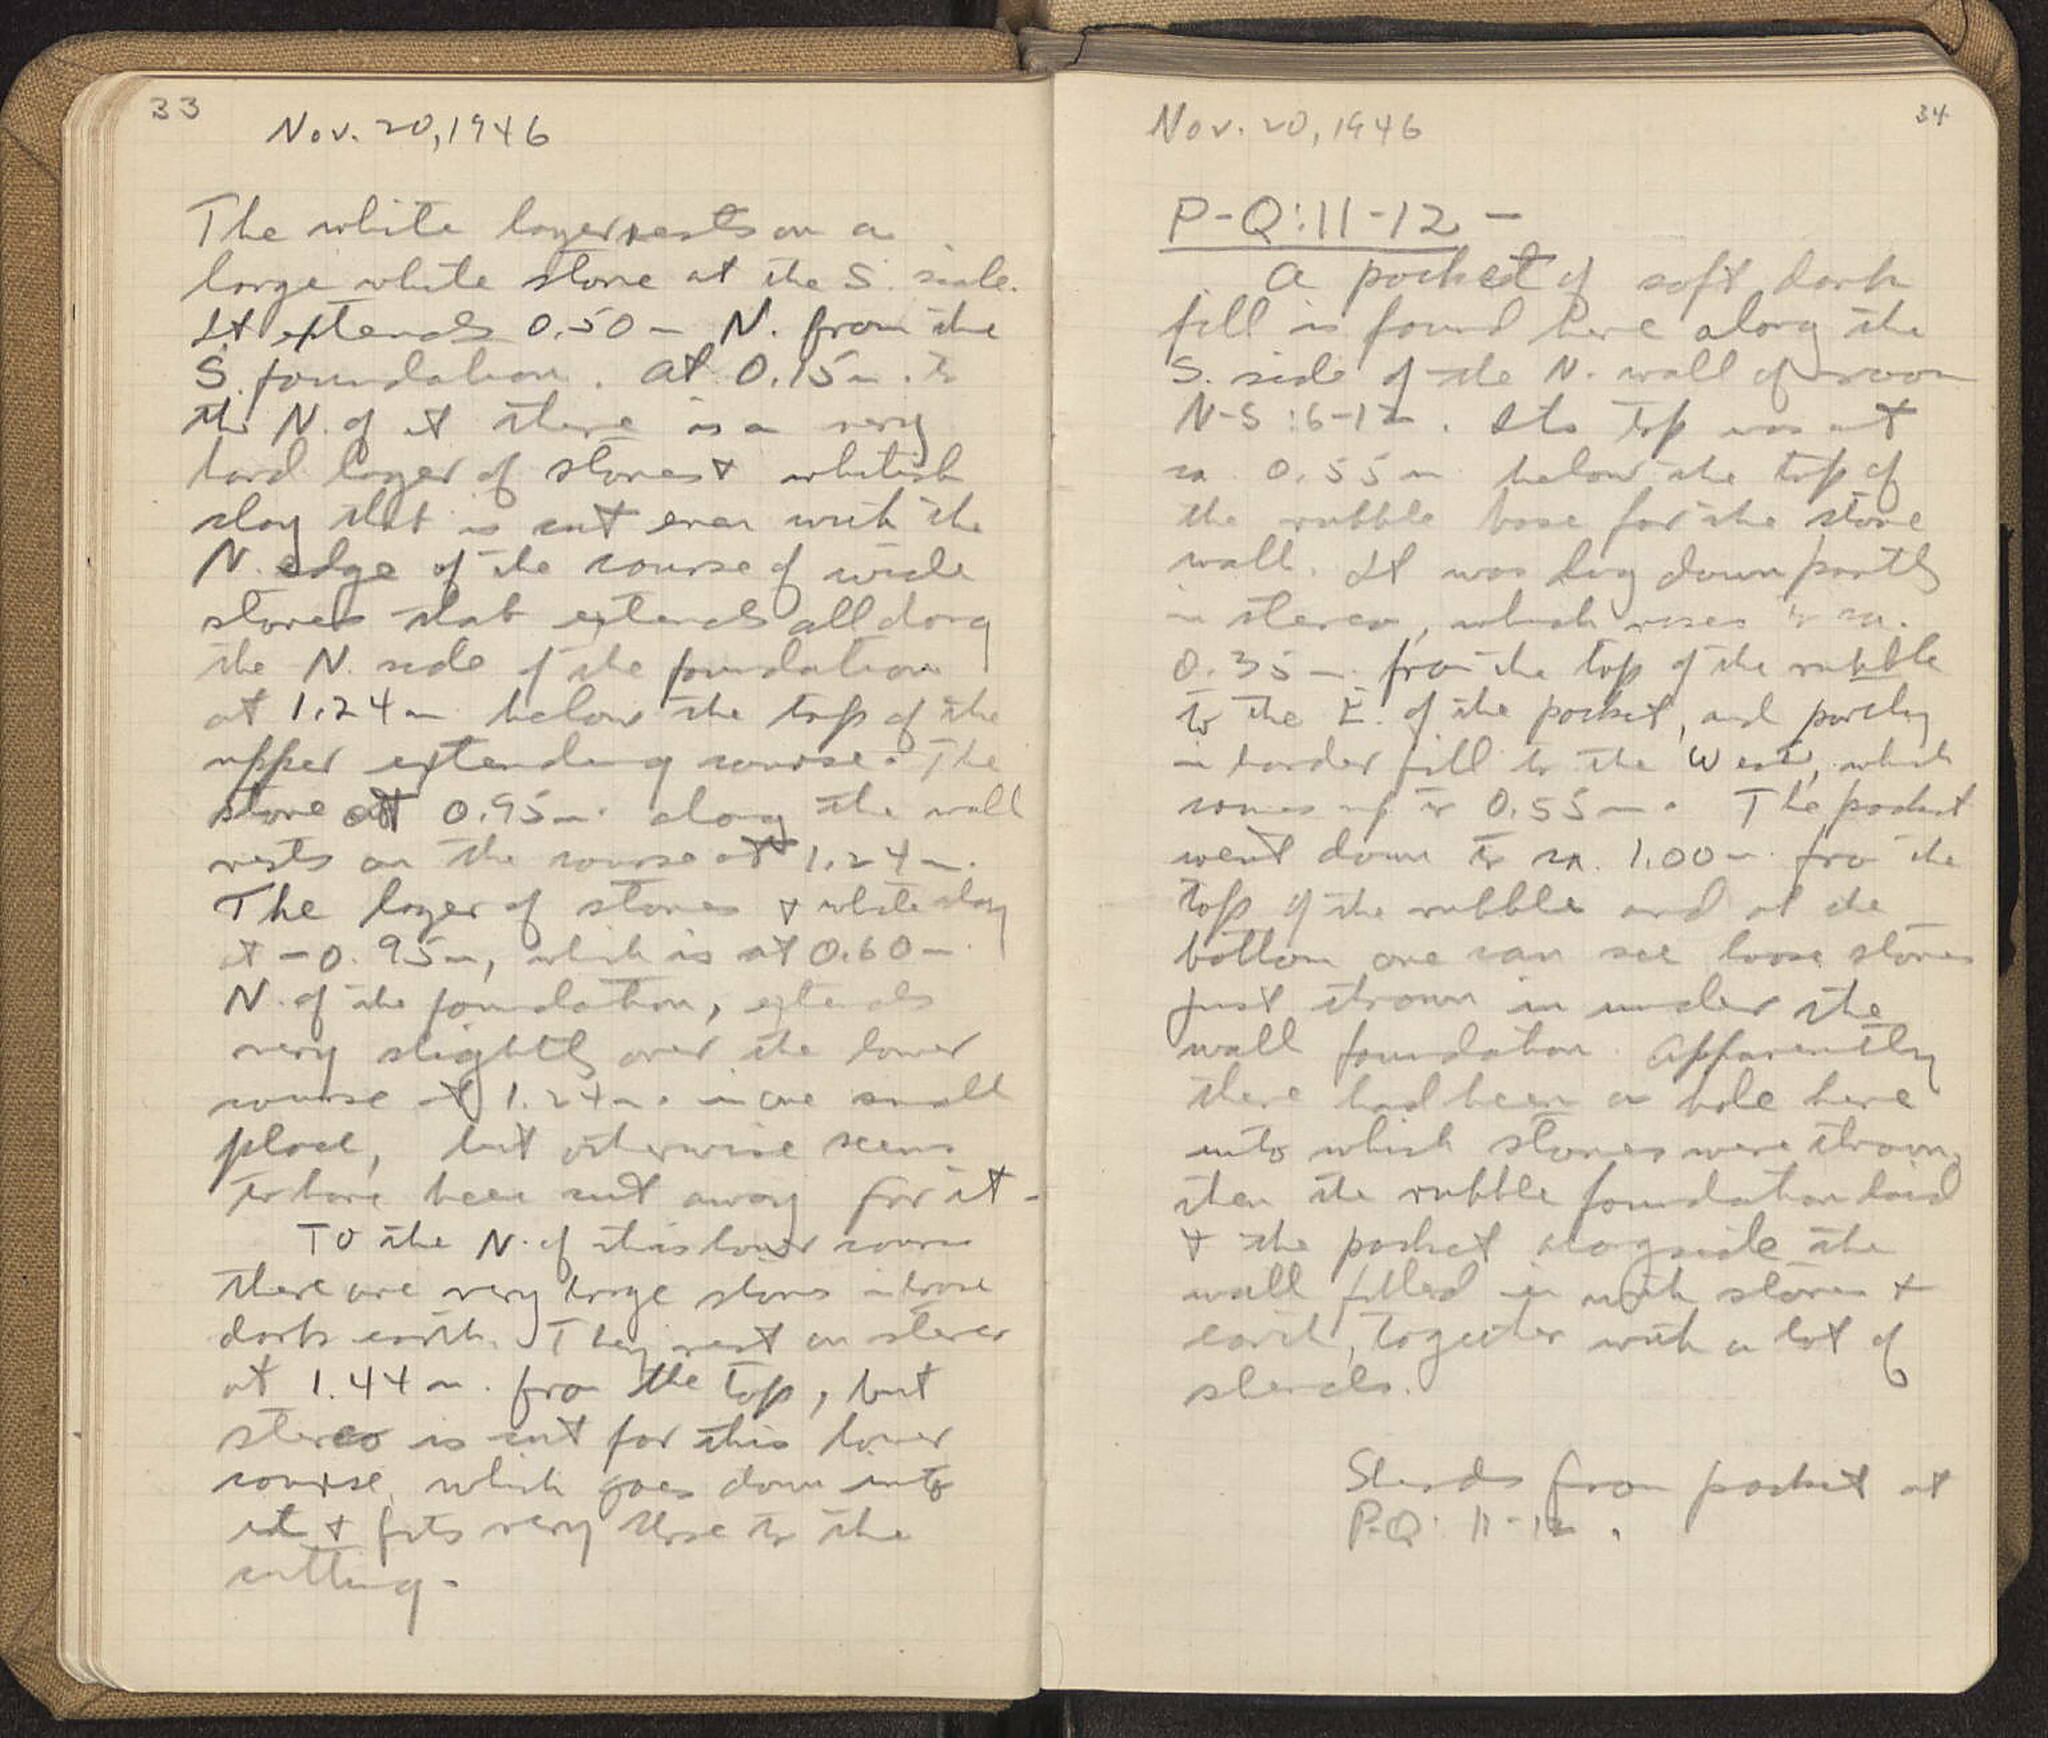 33
Nov. 20, 1946
The white layer rests on a
large white stone at the S. side.
It extends 0.50 m N. from the
S. foundation. At 0.15 m. to
the N. of it there is a very
hard layer of stones & whitish
clay that is cut even with the
N. edge of the course of wide
stones that extends all along
the N. side of the foundation
at 1.24 m below the top of the
upper extending course. The
stone at 0.95 m. along the wall
rests on the course at 1.24 m.
The layer of stones & white clay
at -0.95 m, which is at 0.60 m
N. of the foundation, extends
very slightly over the lower
course at 1.24 m. in one small
place, but otherwise seems
to have been cut away for it.
To the N. of this lower course
there are very large stones in loose
dark earth. They rest on stereo
at 1.44 m. from the top, but
stereo is cut for this lower
course, which goes down into
it & fits very close to the
cutting.
34
Nov. 20, 1946
P-Q:11-12 -
A pocket of soft dark
fill is found here along the
S. side of the N. wall of room
N-S:6-12. Its top was at
ca. 0.55 m below the top of
the rubble base for the stone
wall. It was dug down partly
in stereo, which rises to ca.
0.35 m. from the top of the rubble
to the E. of the pocket, and partly
in harder fill to the West, which
comes up to 0.55 m. The pocket
went down to ca. 1.00 m. fro the
top of the rubble and at the
bottom one can see loose stones
just thrown in under the
wall foundation. Apparently
there had been a hole here
into which stones were thrown,
then the rubble foundation laid
& the pocket alogside the
wall filled in with stones &
earth, together with a lot of
sherds.
Sherds from pocket at
P-Q: 11-12.